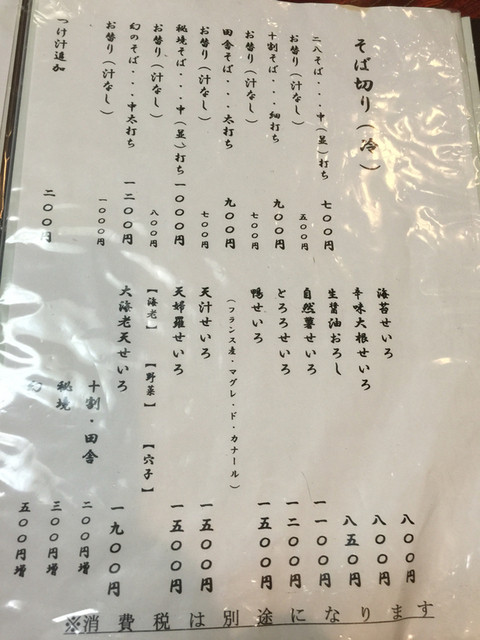 そば切り（冷）
二八そば・・・中（並）打ち 七〇〇円
お替り（汁なし） 五〇〇円
十割そば・・・細打ち 九〇〇円
お替り（汁なし） 七〇〇円
田舎そば・・・太打ち 九〇〇円
お替り（汁なし） 七〇〇円
秘境そば・・・中（並）打ち 一〇〇〇円
お替り（汁なし） 八〇〇円
幻のそば・・・中太打ち 一二〇〇円
お替り（汁なし） 一〇〇〇円
つけ汁追加 二〇〇円
海苔せいろ 八〇〇円
辛味大根せいろ 八〇〇円
生醤油おろし 八五〇円
自然薯せいろ 一一〇〇円
とろろせいろ 一二〇〇円
鴨せいろ 一五〇〇円
（フランス産・マグレ・ド・カナール）
天汁せいろ 一五〇〇円
天婦羅せいろ 一五〇〇円
【海老】 【野菜】 【穴子】
大海老天せいろ 一九〇〇円
十割・田舎 二〇〇円増
秘境 三〇〇円増
幻 五〇〇円増
※消費税は別途になります